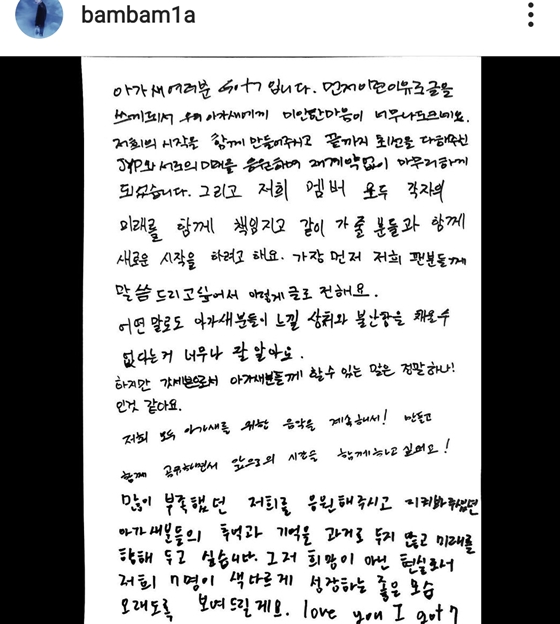 bambam1a
아가새여러분 GOT7 입니다. 먼저이런이유로글을
쓰게되서 우리 아가새에게 미안한마음이 너무나도크네요.
저희의 시작을 함께 만들어주시고 끝까지 최선을 다해주신
JYP와 서로의 미래를 응원하며 재계약없이 마무리하게
되었습니다. 그리고 저희 멤버 모두 각자의
미래를 함께 책임지고 같이 가 줄 분들과 함께
새로운 시작을 하려고 해요. 가장 먼저 저희 팬분들께
말씀 드리고싶어서 이렇게 글로 전해요.
어떤 말로도 아가새분들이 느낄 상처와 불안함을 채울수
없다는거 너무나 잘 알아요.
하지만 갓세븐으로서 아가새분들께 할수 있는 말은 정말하나!
인것 같아요.
저희 모두 아가새를 위한 음악을 계속해서! 만들고
함께 공유하면서 앞으로의 시간을 함께하고 싶어요!
많이 부족했던 저희를 응원해주시고 지켜봐주셨던
아가새분들의 추억과 기억을 과거로 두지 않고 미래를
향해 두고 싶습니다. 그저 희망이 아닌 현실로서
저희 7명이 색다르게 성장하는 좋은 모습
오래도록 보여드릴게요. love you I got7